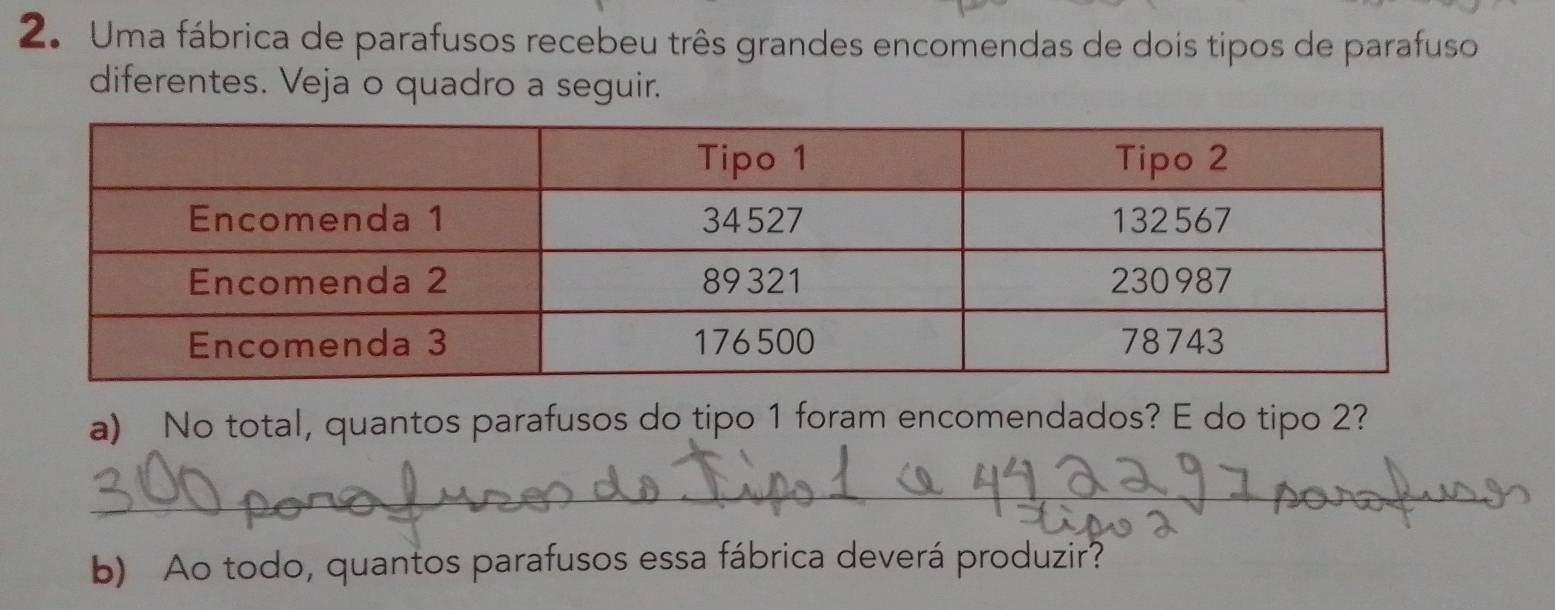 2. Uma fábrica de parafusos recebeu três grandes encomendas de dois tipos de parafuso
diferentes. Veja o quadro a seguir.
Tipo 1 Tipo 2
Encomenda 1 34 527 132 567
Encomenda 2 89 321 230 987
Encomenda 3 176 500 78 743
a) No total, quantos parafusos do tipo 1 foram encomendados? E do tipo 2?
300 parafusos do Tipo 1 e 442297 parafusos
tipo 2
b) Ao todo, quantos parafusos essa fábrica deverá produzir?